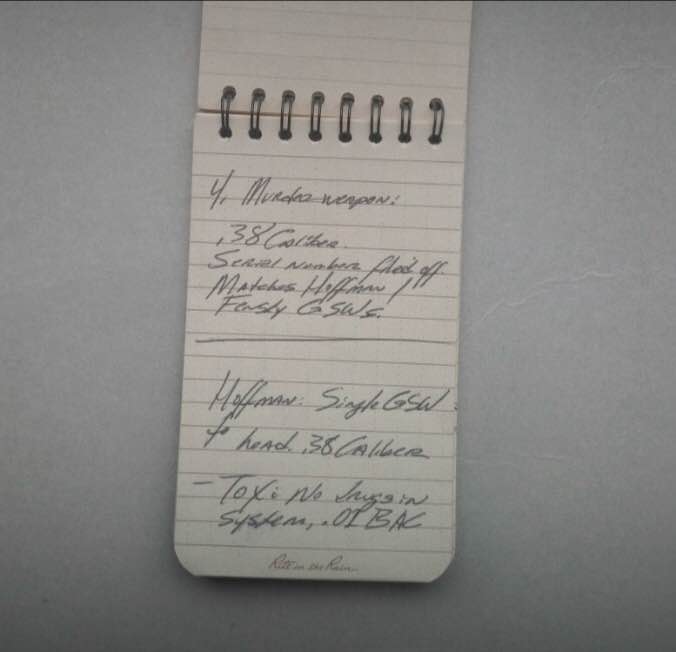 4. Murder weapon:
.38 Caliber
Serial number filed off
Matches Hoffman /
Fensky GSWs.
Hoffman: Single GSW
to head .38 Caliber
- Tox: No drugs in
system, .01 BAC
Rite in the Rain